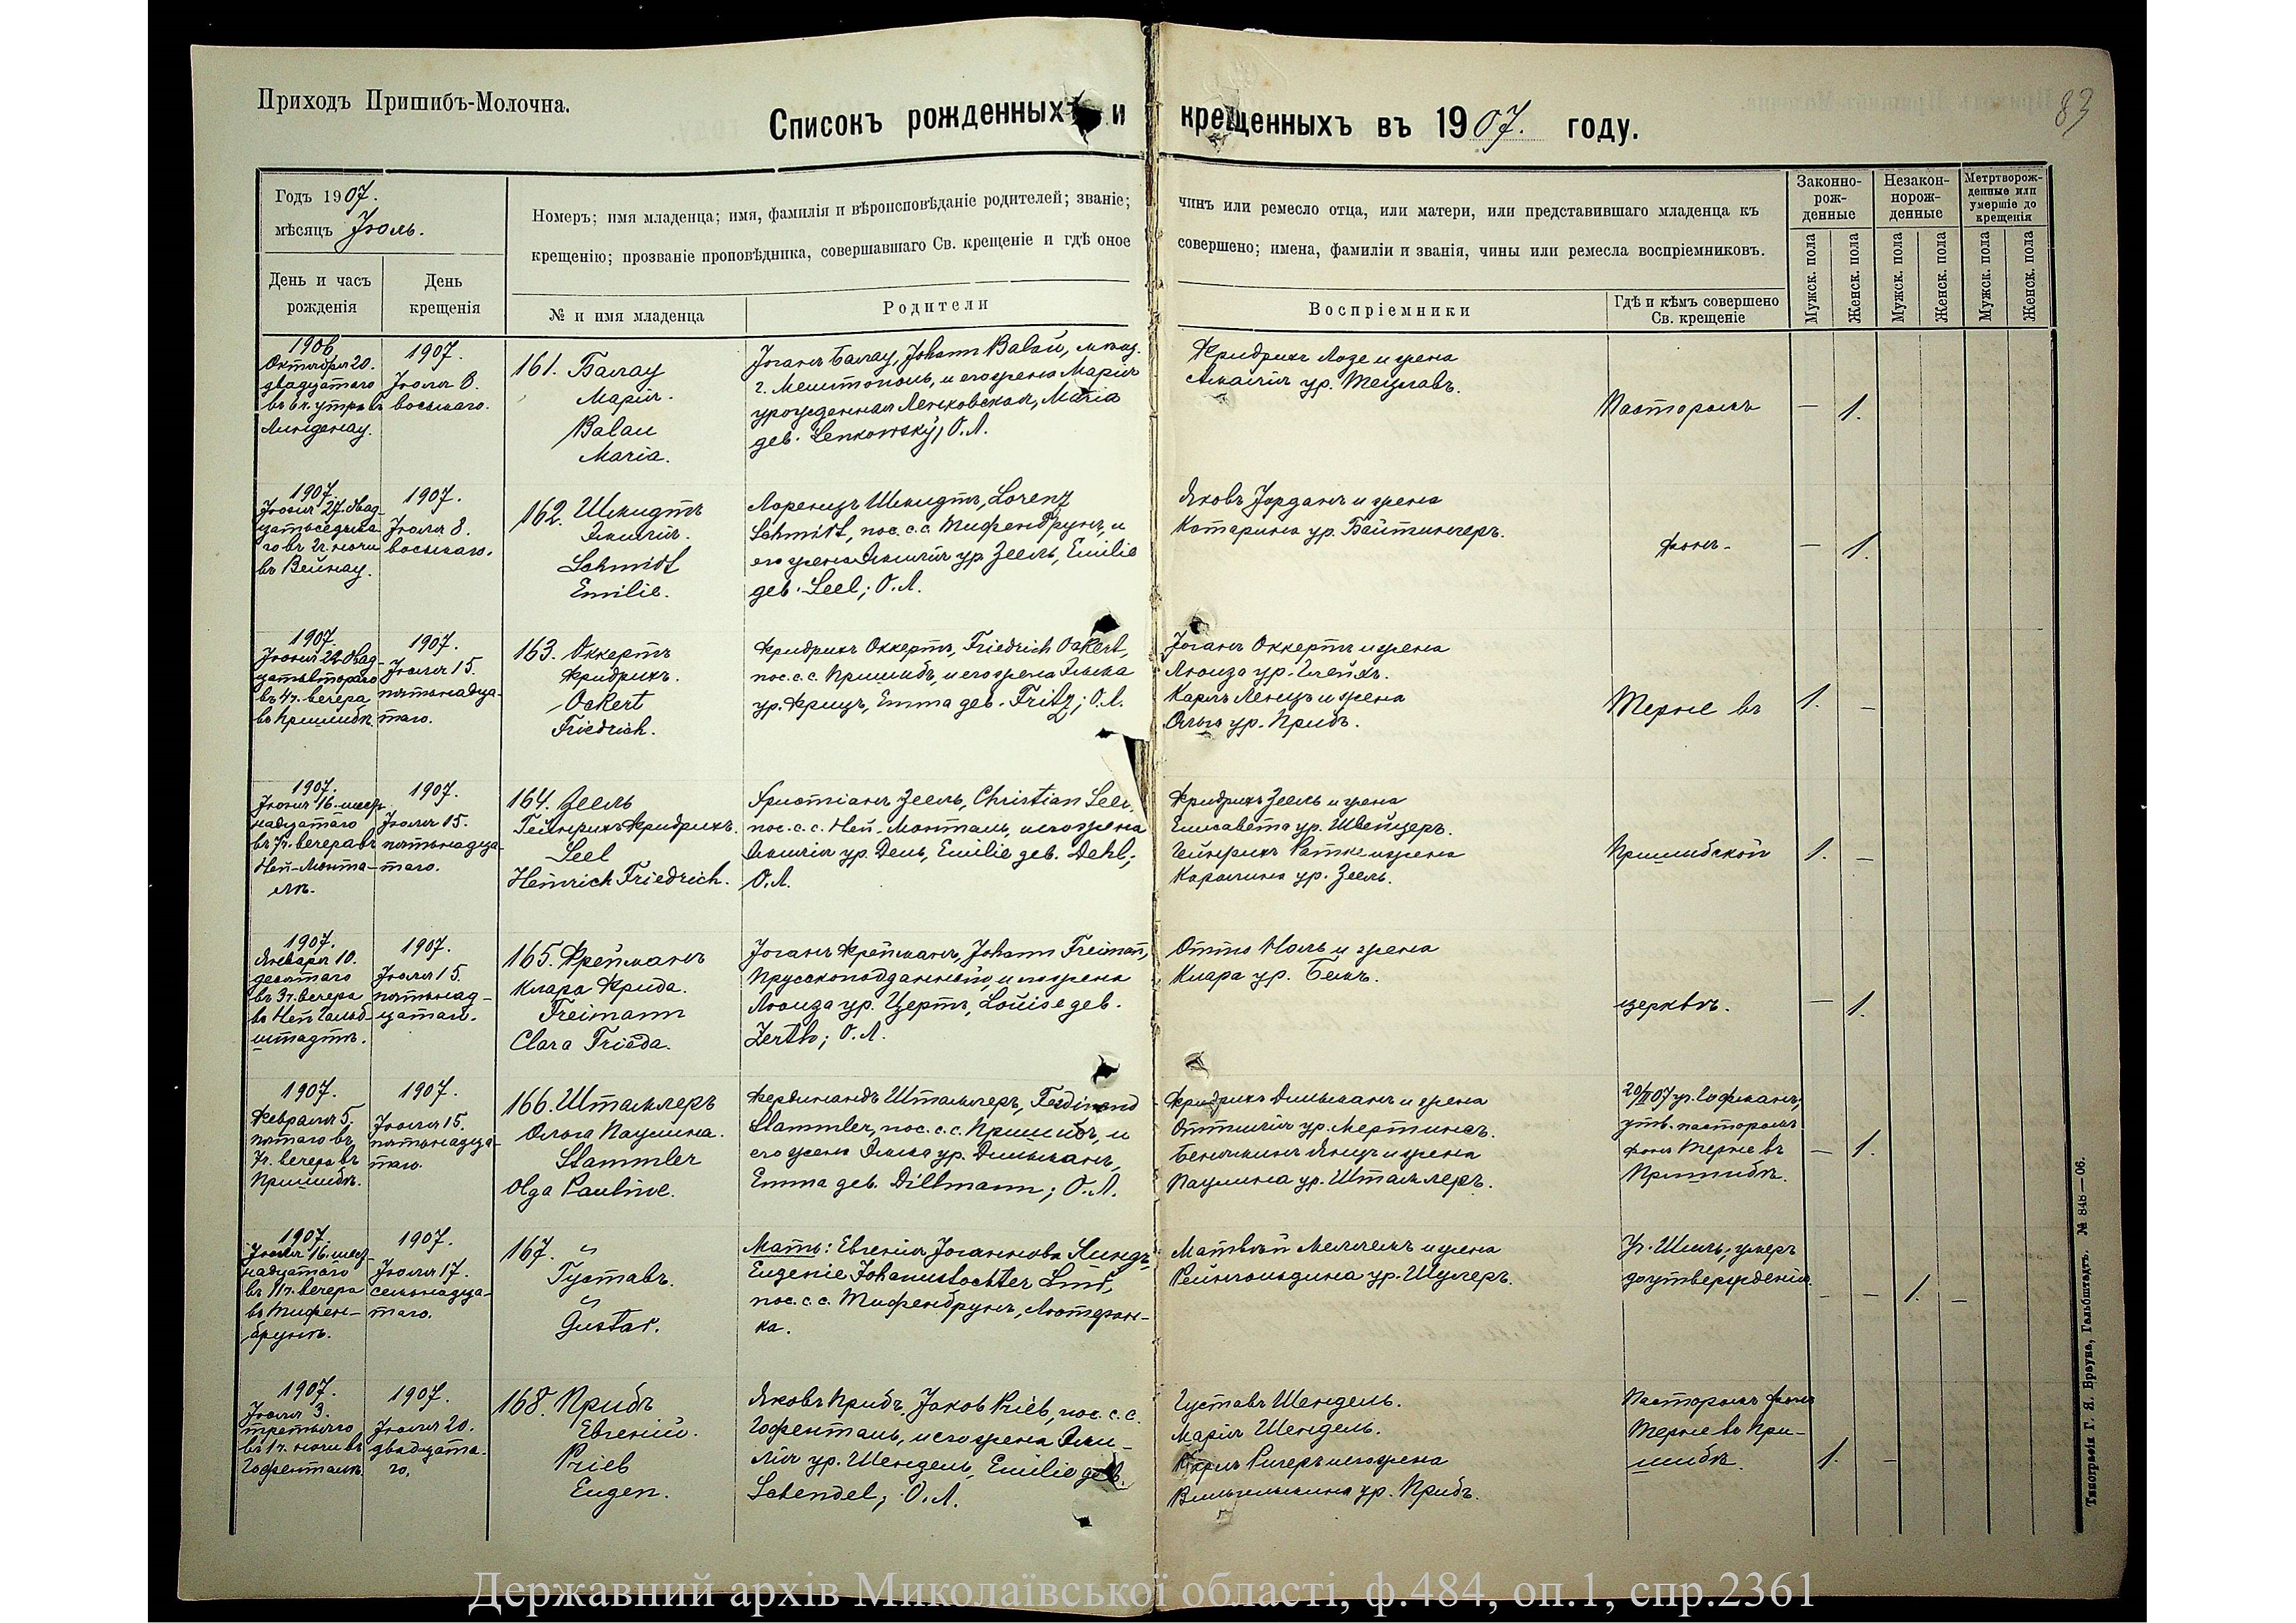 Приходъ Пришибъ-Молочна.
83
Списокъ рожденныхъ и крещенныхъ въ 1907. году.
Годъ 1907.
мѣсяцъ Іюль.
День и часъ
рожденія
День
крещенія
Номеръ; имя младенца; имя, фамилія и вѣроисповѣданіе родителей; званіе;
крещенію; прозваніе проповѣдника, совершавшаго Св. крещеніе и гдѣ оное
№ и имя младенца
Родители
чинъ или ремесло отца, или матери, или представившаго младенца къ
совершено; имена, фамиліи и званія, чины или ремесла воспріемниковъ.
Воспріемники
Гдѣ и кѣмъ совершено
Св. крещеніе
Законно-
рож-
денные
Незакон-
норож-
денные
Метрворож-
денные или
умершіе до
крещенія
Мужск. пола
Женск. пола
Мужск. пола
Женск. пола
Мужск. пола
Женск. пола
1906
Октября 20.
двадцатаго
въ 6 ч. утра въ
Линденау.
1907.
Іюля 8.
восьмаго.
161. Балау
Марія.
Balau
Maria.
Іоганъ Балау, Johann Balau,
г. Мелитополь, и его жена Марія
урожденная Ленковская, Maria
geb. Lenkowsky; О.Л.
Фридрихъ Лозе и жена
Амалія ур. Тецлавъ.
Пасторомъ
— 1.
1907.
Іюня 27. двад-
цатьседьма-
го въ 2 ч. ночи
въ Вейнау.
1907.
Іюля 8.
восьмаго.
162. Шмидтъ
Эмилія.
Schmidt
Emilie.
Лоренцъ Шмидтъ, Lorenz
Schmidt, пос. с.с. Тифенбрунъ, и
его жена Эмилія ур. Зеель, Emilie
geb. Seel; О.Л.
Яковъ Іорданъ и жена
Катарина ур. Байтингеръ.
фонъ-
— 1.
1907.
Іюня 22. двад-
цатьвтораго
въ 4 ч. вечера
въ Пришибѣ.
1907.
Іюля 15.
пятьнадца-
таго.
163. Оккертъ
Фридрихъ.
Ockert
Friedrich.
Фридрихъ Оккертъ, Friedrich Ockert,
пос. с.с. Пришибъ, и его жена Эмма
ур. Фрицъ, Emma geb. Fritz; О.Л.
Іоганъ Оккертъ и жена
Луиза ур.
Карлъ Ленцъ и жена
Ольга ур. Прибъ.
Терне въ
1. —
1907.
Іюня 16. шест-
надцатаго
въ 7 ч. вечера въ
Ней-Монта-
лѣ.
1907.
Іюля 15.
пятьнадца-
таго.
164. Зеель
Гейнрихъ Фридрихъ.
Seel
Heinrich Friedrich.
Христіанъ Зеель, Christian Seel,
пос. с.с. Ней-Монталь, и его жена
Эмилія ур. Дель, Emilie geb. Dehl;
О.Л.
Фридрихъ Зеель и жена
Елисавета ур. Швейцеръ.
Гейнрихъ Ратке и жена
Каролина ур. Зеель.
Пришибской
1. —
1907.
Января 10.
десятаго
въ 3 ч. вечера
въ Ней Гальб-
штадтѣ.
1907.
Іюля 15.
пятьнад-
цатаго.
165. Фрейманъ
Клара Фрида.
Freimann
Clara Frieda.
Іоганъ Фрейманъ, Johann Freimann,
Прусскоподданный, и его жена
Луиза ур. Цертъ, Louise geb.
Zerth; О.Л.
Отто Ноль и жена
Клара ур. Бекъ.
церкви.
— 1.
1907.
Февраля 5.
пятаго въ
7 ч. вечера въ
Пришибѣ.
1907.
Іюля 15.
пятьнадца-
таго.
166. Штамлеръ
Ольга Паулина.
Stammler
Olga Pauline.
Фердинандъ Штамлеръ, Ferdinand
Stammler, пос. с.с. Пришибъ, и
его жена Эмма ур. Дильманъ,
Emma geb. Dillmann; О.Л.
Фридрихъ Дильманъ и жена
Оттилія ур. Мертинсъ.
Беньяминъ Янцъ и жена
Паулина ур. Штамлеръ.
20/II 07 уч. Гофманъ,
утв. пасторомъ
фонъ Терне въ
Пришибѣ.
— 1.
1907.
Іюля 16. шест-
надцатаго
въ 11 ч. вечера
въ Тифен-
брунѣ.
1907.
Іюля 17.
семьнадца-
таго.
167. "
Густавъ.
"
Gustav.
Мать: Евгенія Іоганнова Линдъ,
Eugenie Johannstochter Lind,
пос. с.с. Тифенбрунъ, лютеран-
ка.
Матвѣй Меллемъ и жена
Рейнгольдина ур. Шулеръ.
Уч. Шиль; умеръ
до утвержденія.
— — 1. —
1907.
Іюля 3.
третьяго
въ 1 ч. ночи въ
Гофенталѣ.
1907.
Іюля 20.
двадцата-
го.
168. Прибъ
Евгеній.
Prieb
Eugen.
Яковъ Прибъ, Jakob Prieb, пос. с.с.
Гофенталь, и его жена Эми-
лія ур. Шендель, Emilie geb.
Schendel; О.Л.
Густавъ Шендель.
Марія Шендель.
Карлъ Ригеръ и его жена
Вильгельмина ур. Прибъ.
Пасторомъ фонъ
Терне въ При-
шибѣ.
1. —
Типографія Г. Я. Брауна, Гальбштадтъ. № 848—06.
Державний архів Миколаївської області, ф.484, оп.1, спр.2361